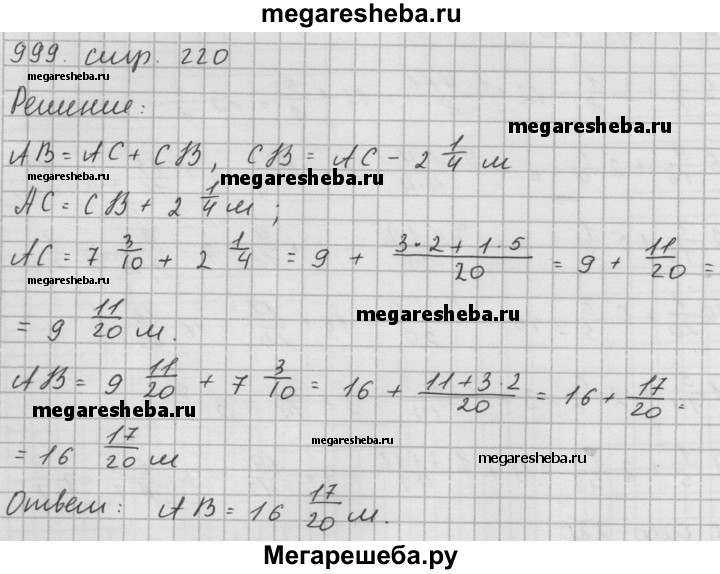 megaresheba.ru
999. стр. 220
megaresheba.ru
Решение:
megaresheba.ru
AB = AC + CB, CB = AC - 2 1/4 м
megaresheba.ru
AC = CB + 2 1/4 м ;
AC = 7 3/10 + 2 1/4 = 9 + (3·2 + 1·5)/20 = 9 + 11/20 =
megaresheba.ru
= 9 11/20 м.
megaresheba.ru
AB = 9 11/20 + 7 3/10 = 16 + (11+3·2)/20 = 16 + 17/20 =
megaresheba.ru
megaresheba.ru
= 16 17/20 м
megaresheba.ru
Ответ: AB = 16 17/20 м.
Мегарешеба.ру